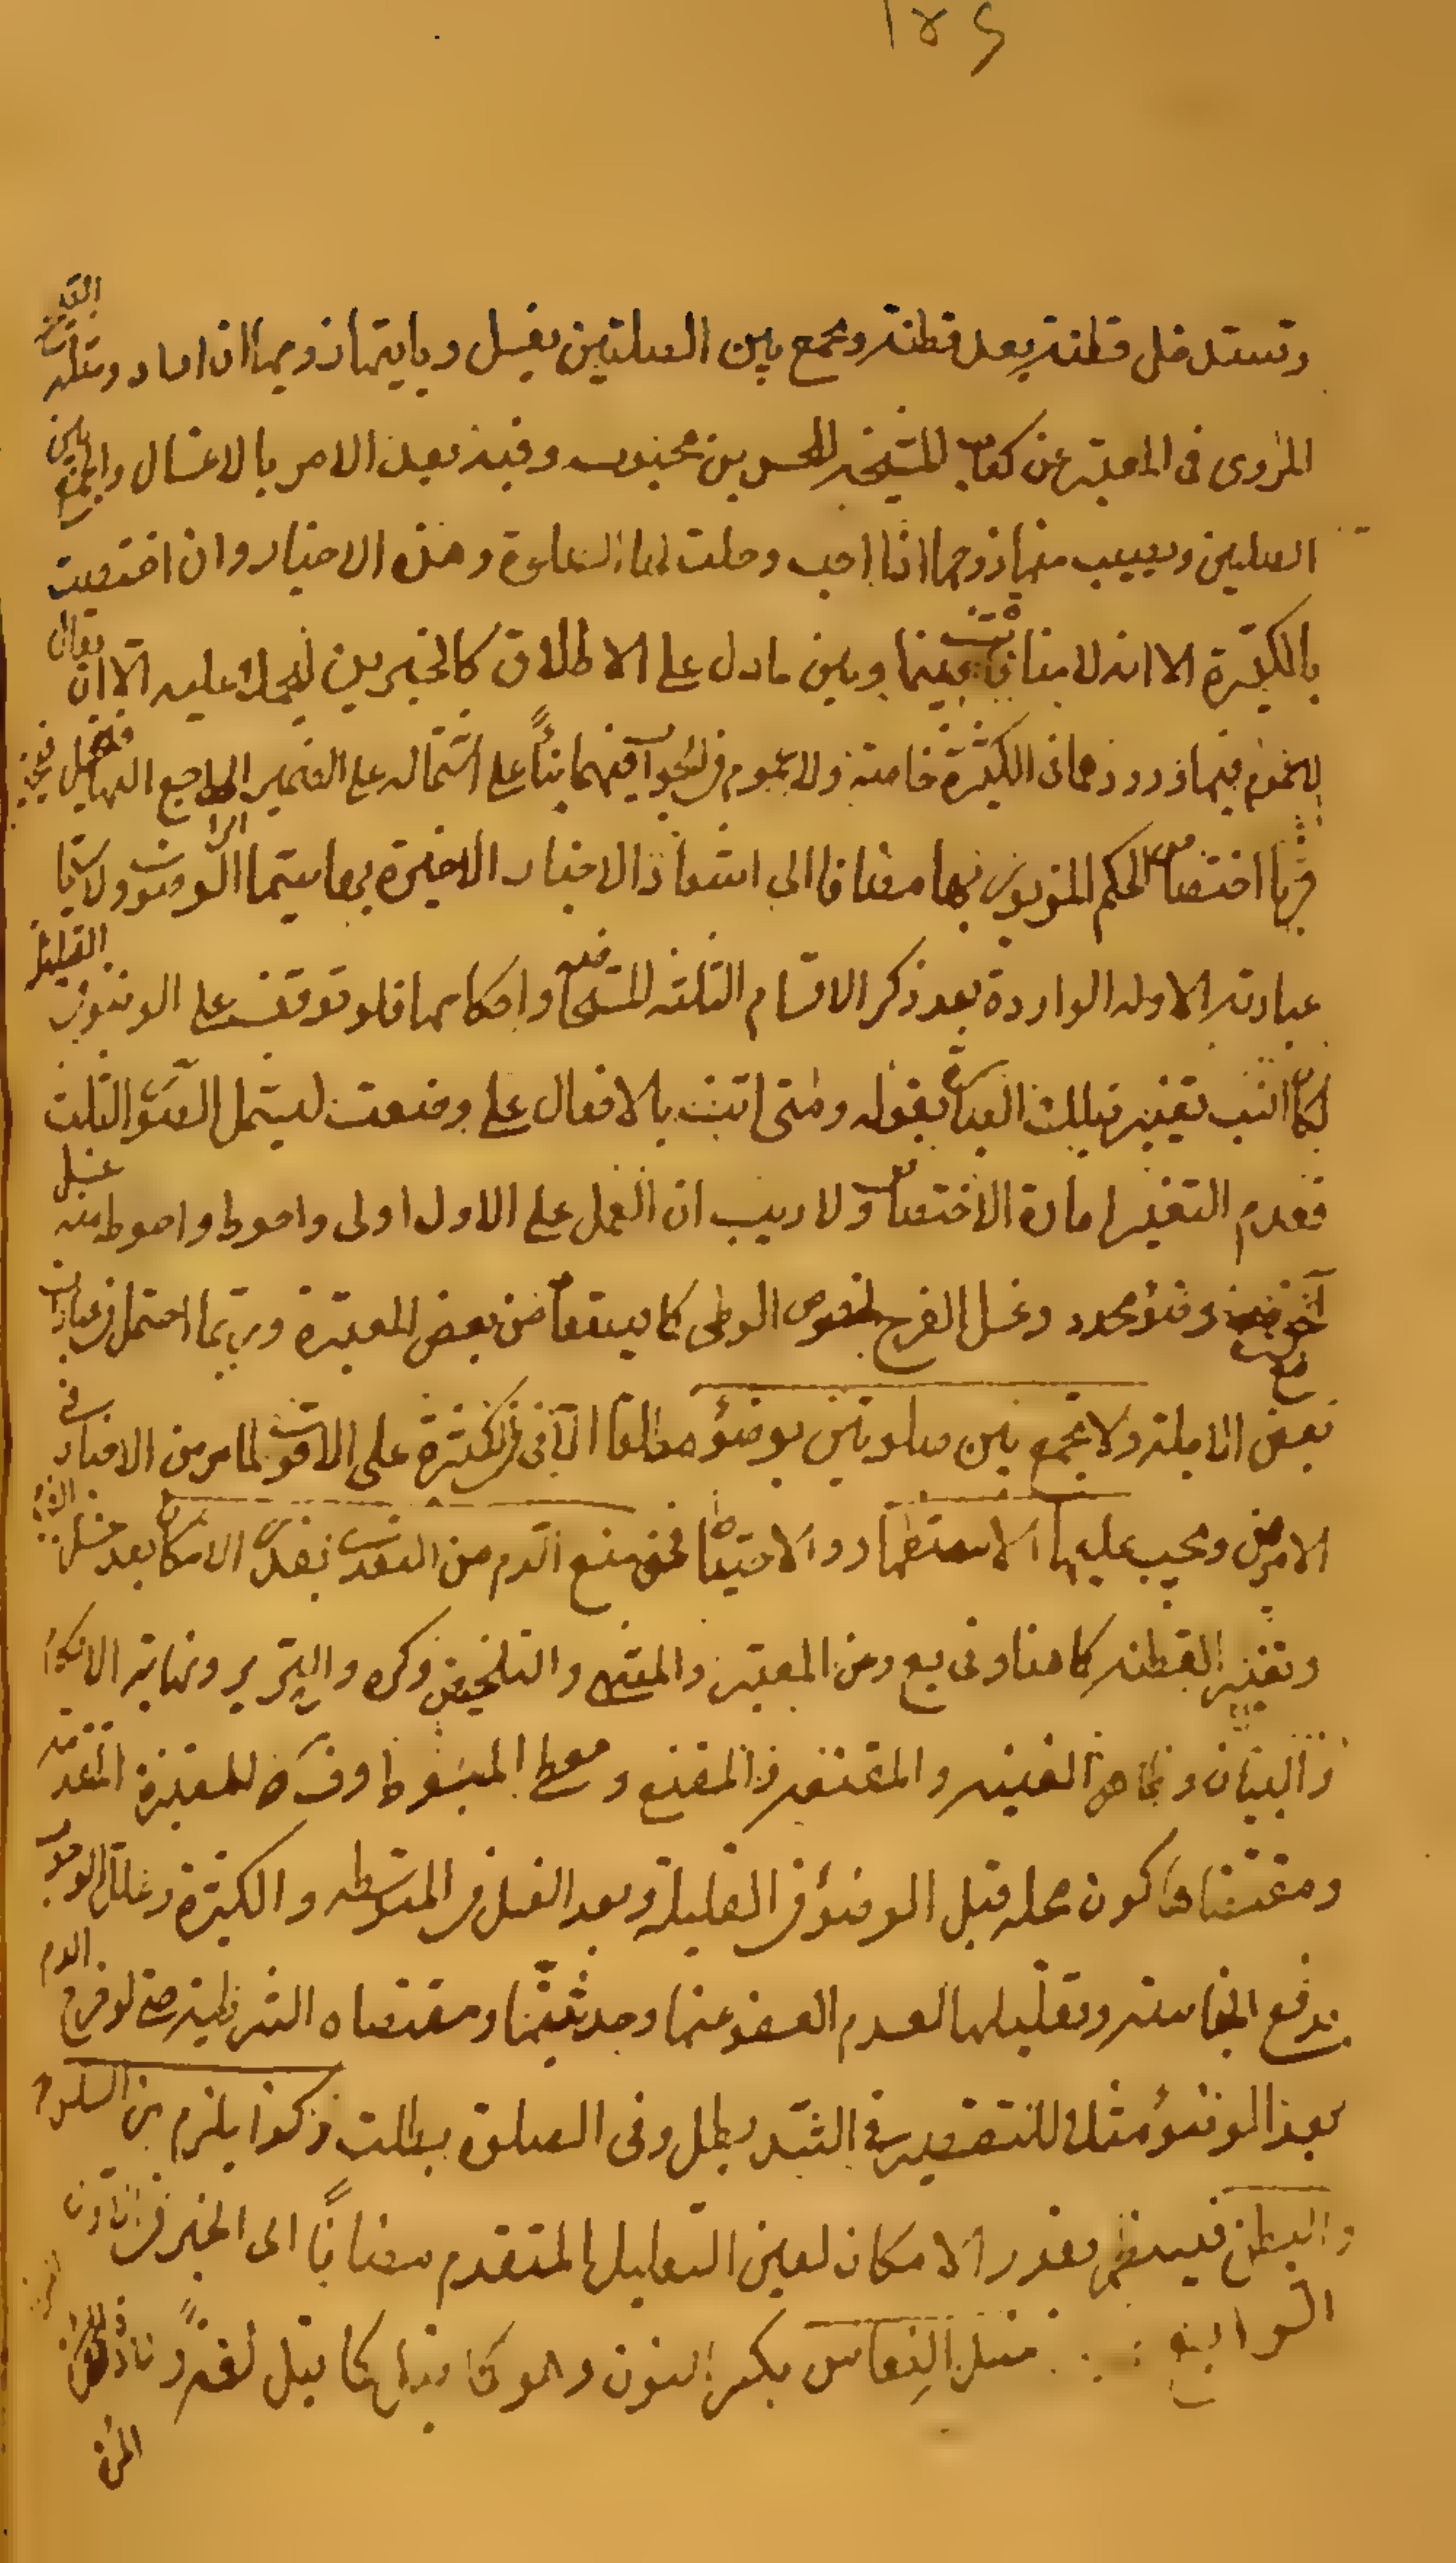 وتستدخل قطنة بعد قطنة وتجمع بين الصلاتين بغسل ويأتيها زوجها ان اراد ومثله
المروى فى المعتبر عن كتاب المشيخة للحسن بن محبوب وفيه بعد الامر بالاغسال والجمع بين
الصلاتين ويصيب منها زوجها اذا احب وحلت لها الصلوة وهذه الاخبار وان اختصت
بالكثيرة الا انه لا منافاة بينها وبين ما دل على الاطلاق كالخبرين ليحمل عليه الا ان يقال
لا عموم فيهما لورودهما فى الكثيرة خاصة ولا عموم فى الجواب فيهما بناءً على اشتماله على الضمير الراجع اليها
اختصاص الحكم المزبور بها مضافا الى اشعار الاخبار الاخيرة بها سيما الرضوى ولا سيما
عبارته الاولى الواردة بعد ذكر الاقسام الثلثة للمستحاضة واحكامها فلو توقف على الوضوء فى القليلة
لكان انسب تغيير تلك العبارة بقوله ومتى اتت بالافعال على وضعت ليشمل الصور الثلث
فعدم التغيير امارة الاختصاص ولا ريب ان العمل على الاول اولى واحوط واحوط منه غسل
آخر وضوء مجدد وغسل الفرج لخصوص الوطى كما يستفاد من بعض المعتبرة وربما احتمل فى عبارات
بعض الاجلة ولا تجمع بين صلوتين بوضوء مطلقا الا فى الكثيرة على الاقوى لما مر من الاخبار فى
الامرين ويجب عليها الاستظهار والاحتياط فى منع الدم من التعدى بقدر الامكان بعد غسل الفرج
وتغيير القطنة كما هنا وفى يع وعن المعتبر والمنتهى والتلخيص وكره والتحرير ونهاية الاحكام
والبيان وظاهر الغنيه والمقنعة والمقنع ومصط المبسوط او فيه للمعتبرة المتقدمة
ومقتضاها كون محله قبل الوضوء فى القليلة وبعد الغسل فى المتوسطه والكثيرة وعلل الوجوب
بدفع النجاسة وتقليلها لعدم العفو عنها وحدثيتها ومقتضاه الشرطية حتى لو خرج الدم
بعد الوضوء مثلا للتقصير فى الشد بطل وفى الصلوة بطلت وكذا يلزم من السلس
والبطن فيستظهر بقدر الامكان لعين التعليل المتقدم مضافًا الى الخبر فى الاول
الرابع غسل النفاس بكسر النون وهو كما قيل لغةً ولادة
المرئة